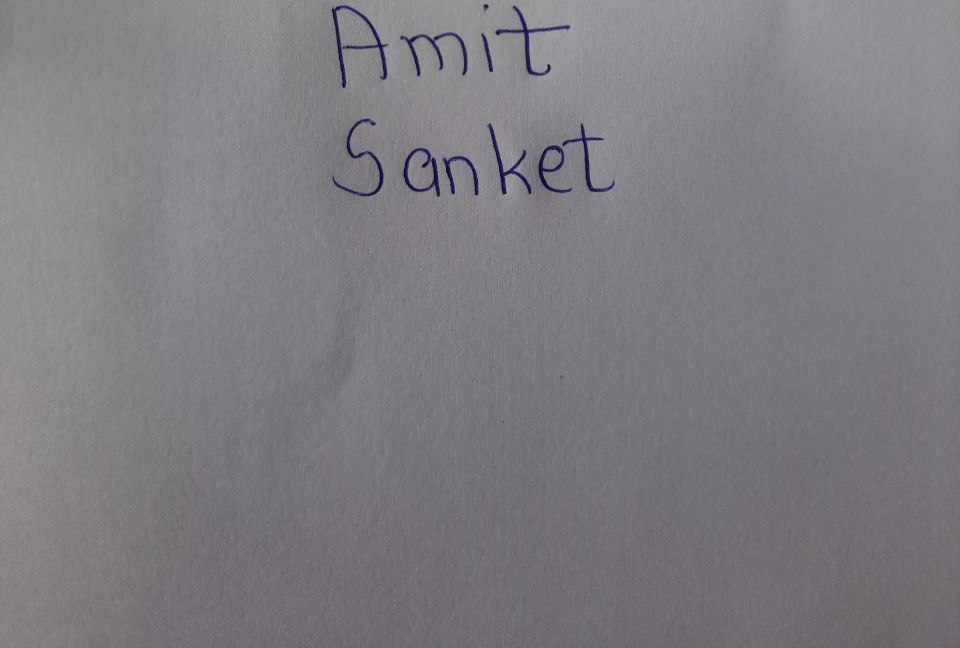 Amit
Sanket